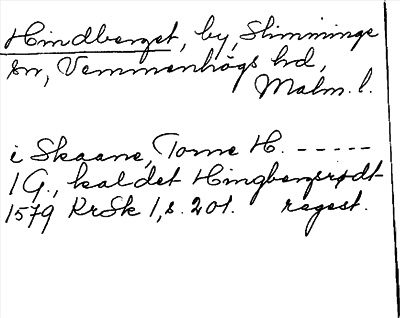 Hindberget, by, Slimminge
sn, Vemmenhögs hd,
Malm. l.
i Skaane, Torne H. -----
1 G., kaldet Hingbergsrødt
1579 KrSk 1, s. 201. regest.